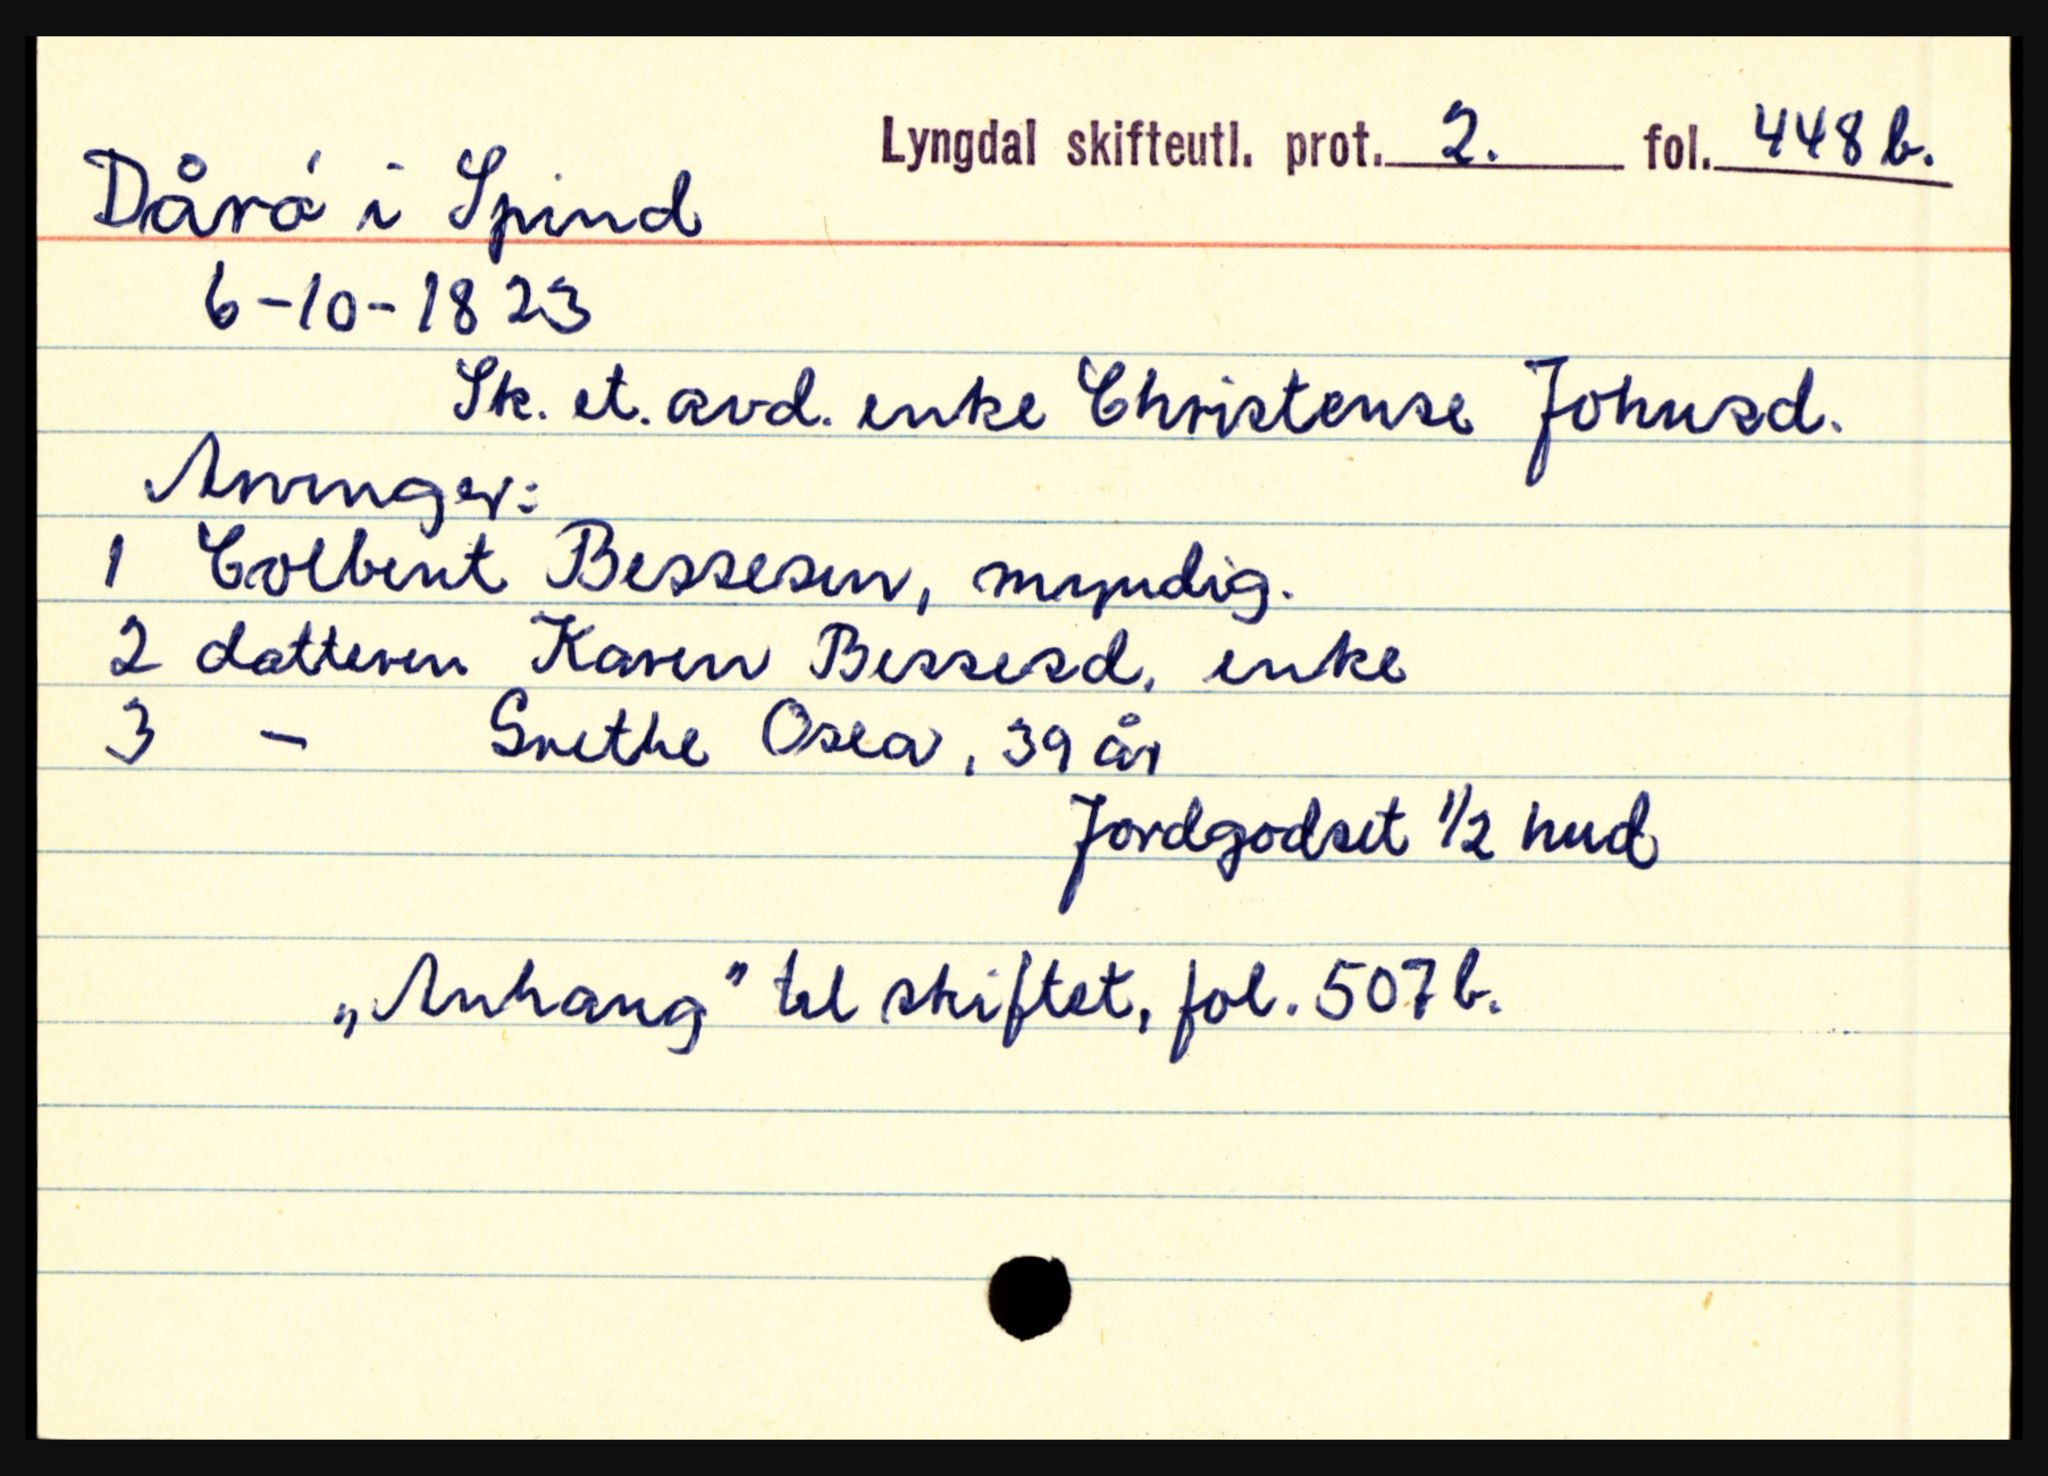 Lyngdal skifteutl. prot. 2. fol. 448 b.
Dårö i Spind
6-10-1823
Sk. et. avd. enke Christense Johnsd.
Arvinger:
1 Colbent Bessesen, myndig.
2 datteren Karen Bessesd, enke
3 - Grethe Osea, 39 år
Jordgodset 1/2 hud
„Anhang" til skiftet, fol. 507 b.